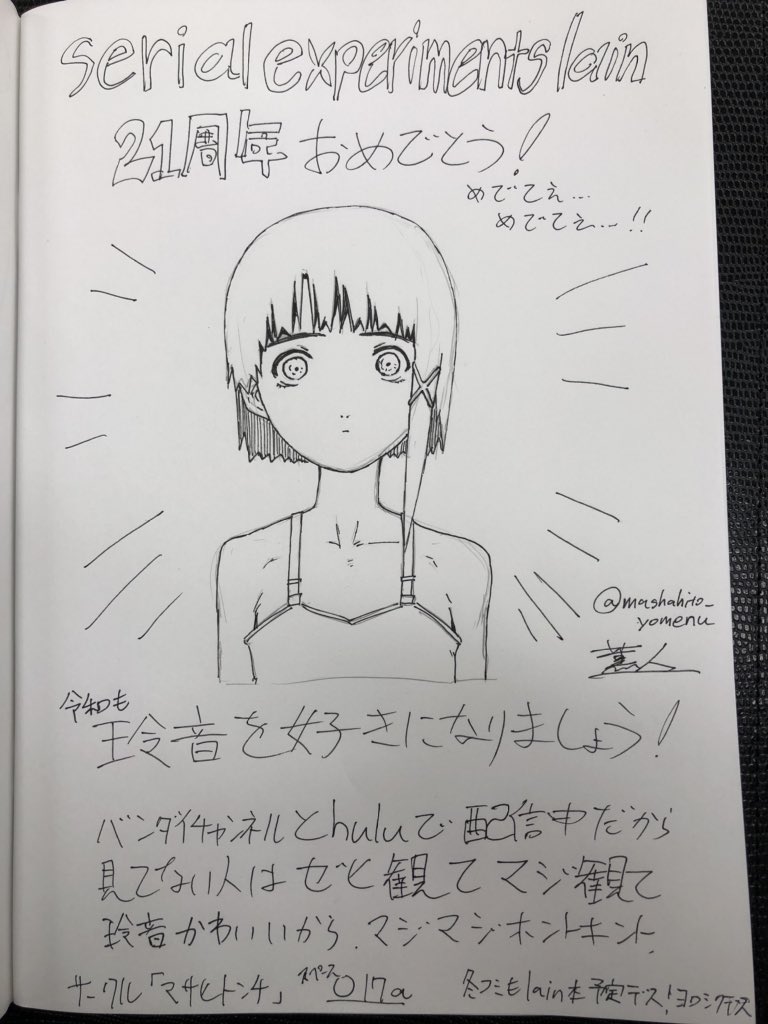 serial experiments lain
21周年 おめでとう!
めでてぇ…
めでてぇ…!!
@mashahito_
yomenu
令和も
玲音を好きになりましょう!
バンダイチャンネルとhuluで配信中だから
見てない人はゼヒ観てマジ観て
玲音かわいいから.マジマジホントホント.
サークル「マサヒトンチ」 スペース 017a
冬コミもlain本予定デス!ヨロシクデス